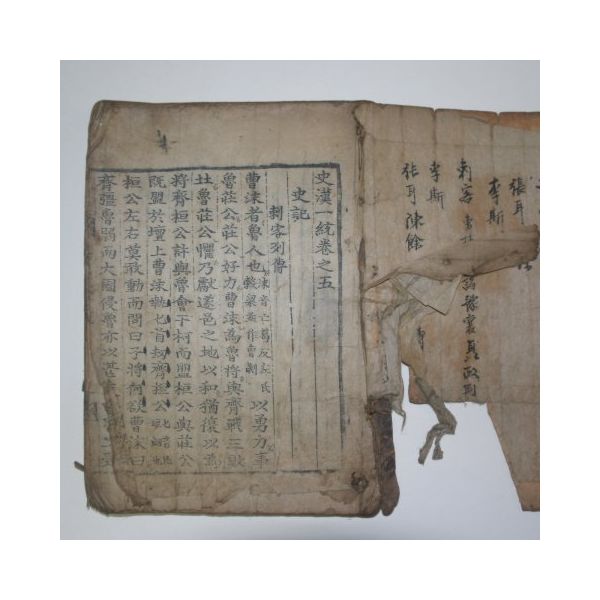 張耳
李斯
刺客
李斯
張耳 陳餘
史漢一統卷之五
史記
刺客列傳
曹沫者魯人也沫音亡葛反左氏穀梁並作曹劌以勇力事
魯莊公莊公好力曹沫為魯將與齊戰三敗
北魯莊公懼乃獻遂邑之地以和猶復以為
將齊桓公許與魯會于柯而盟桓公與莊公
既盟於壇上曹沫執匕首劫齊桓公
桓公左右莫敢動而問曰子將何欲曹沫曰
齊强魯弱而大國侵魯亦以甚